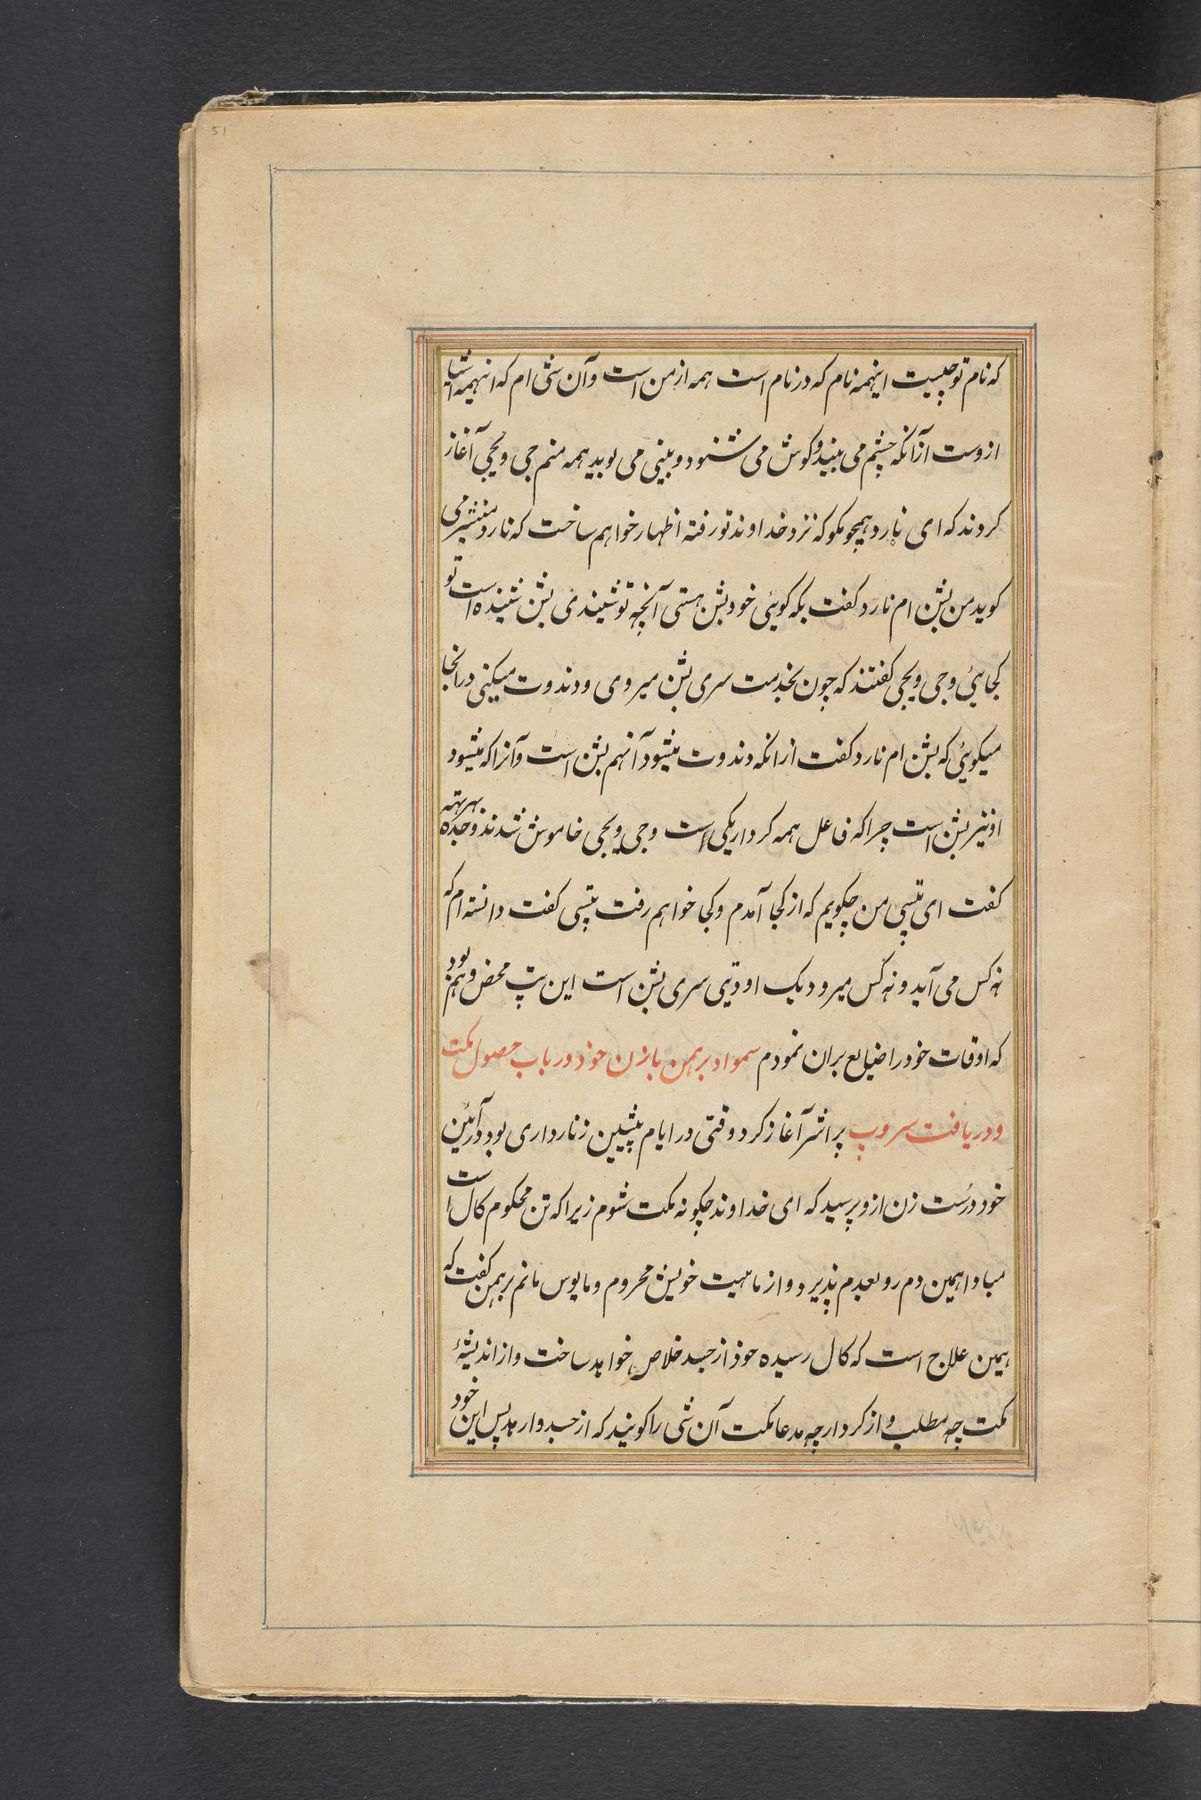 51
که نام تو چیست اینهمه نام که در نام است همه از من است و آن شی ام که اینهمه اشیا
ازوست ازانکه چشم می بیند و کوش می شنود و بینی می بوید همه منم جی و بجی آغاز
کردند که ای نارد همچو مکو که نزد خداوند تو رفته اظهار خواهم ساخت که نارد منتشر می
کوید من بشن ام نارد کفت بکه کوئی خود بشن هستی آنچه تو شنیدی بشن شنیده است تو
کجایی و جی و بجی کفتند که چون بخدمت سری بشن میروی و دندوت میکنی در انجا
میکوئی که بشن ام نارد کفت ازانکه دندوت میشود آنهم بشن است و آنرا که میشود
او نیز بشن است چرا که فاعل همه کردار یکی است و جی و بجی خاموش شدند و جدبهرتهه
کفت ای تپسی من چکویم که از کجا آمدم و کجا خواهم رفت تپسی کفت دانسته ام که
نه کس می آید و نه کس میرود یک اودتی سری بشن است این تپ محض وهم بود
که اوقات خود را ضایع بران نمودم سمواد برهمن با زن خود در باب حصول مکت
و دریافت سروپ پراشر آغاز کرد وقتی در ایام پیشین زنارداری بود در آئین
خود درست زن ازو پرسید که ای خداوند چکونه مکت شوم زیرا که تن محکوم کال است
مبادا همین دم رو بعدم پذیرد و از ماهیت خویش محروم و مایوس مانم برهمن کفت که
همین علاج است که کال رسیده خود از جسد خلاص خواهد ساخت و از اندیشهٔ
مکت چه مطلب و از کردار چه مدعا مکت آن شی را کویند که از جسد وارهد پس این خود